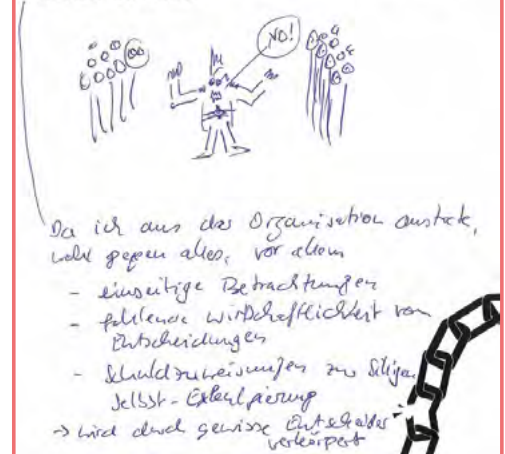 NO!
Da ich aus das Organisation
gegen alles, vor allem
- einseitige Betrachtungen
- fehlende Wirtschaftlichkeit von
Entscheidungen
- Schuldzuweisungen zur
Selbst-Exkulpierung
→ wird durch gewisse Entscheider
verkörpert